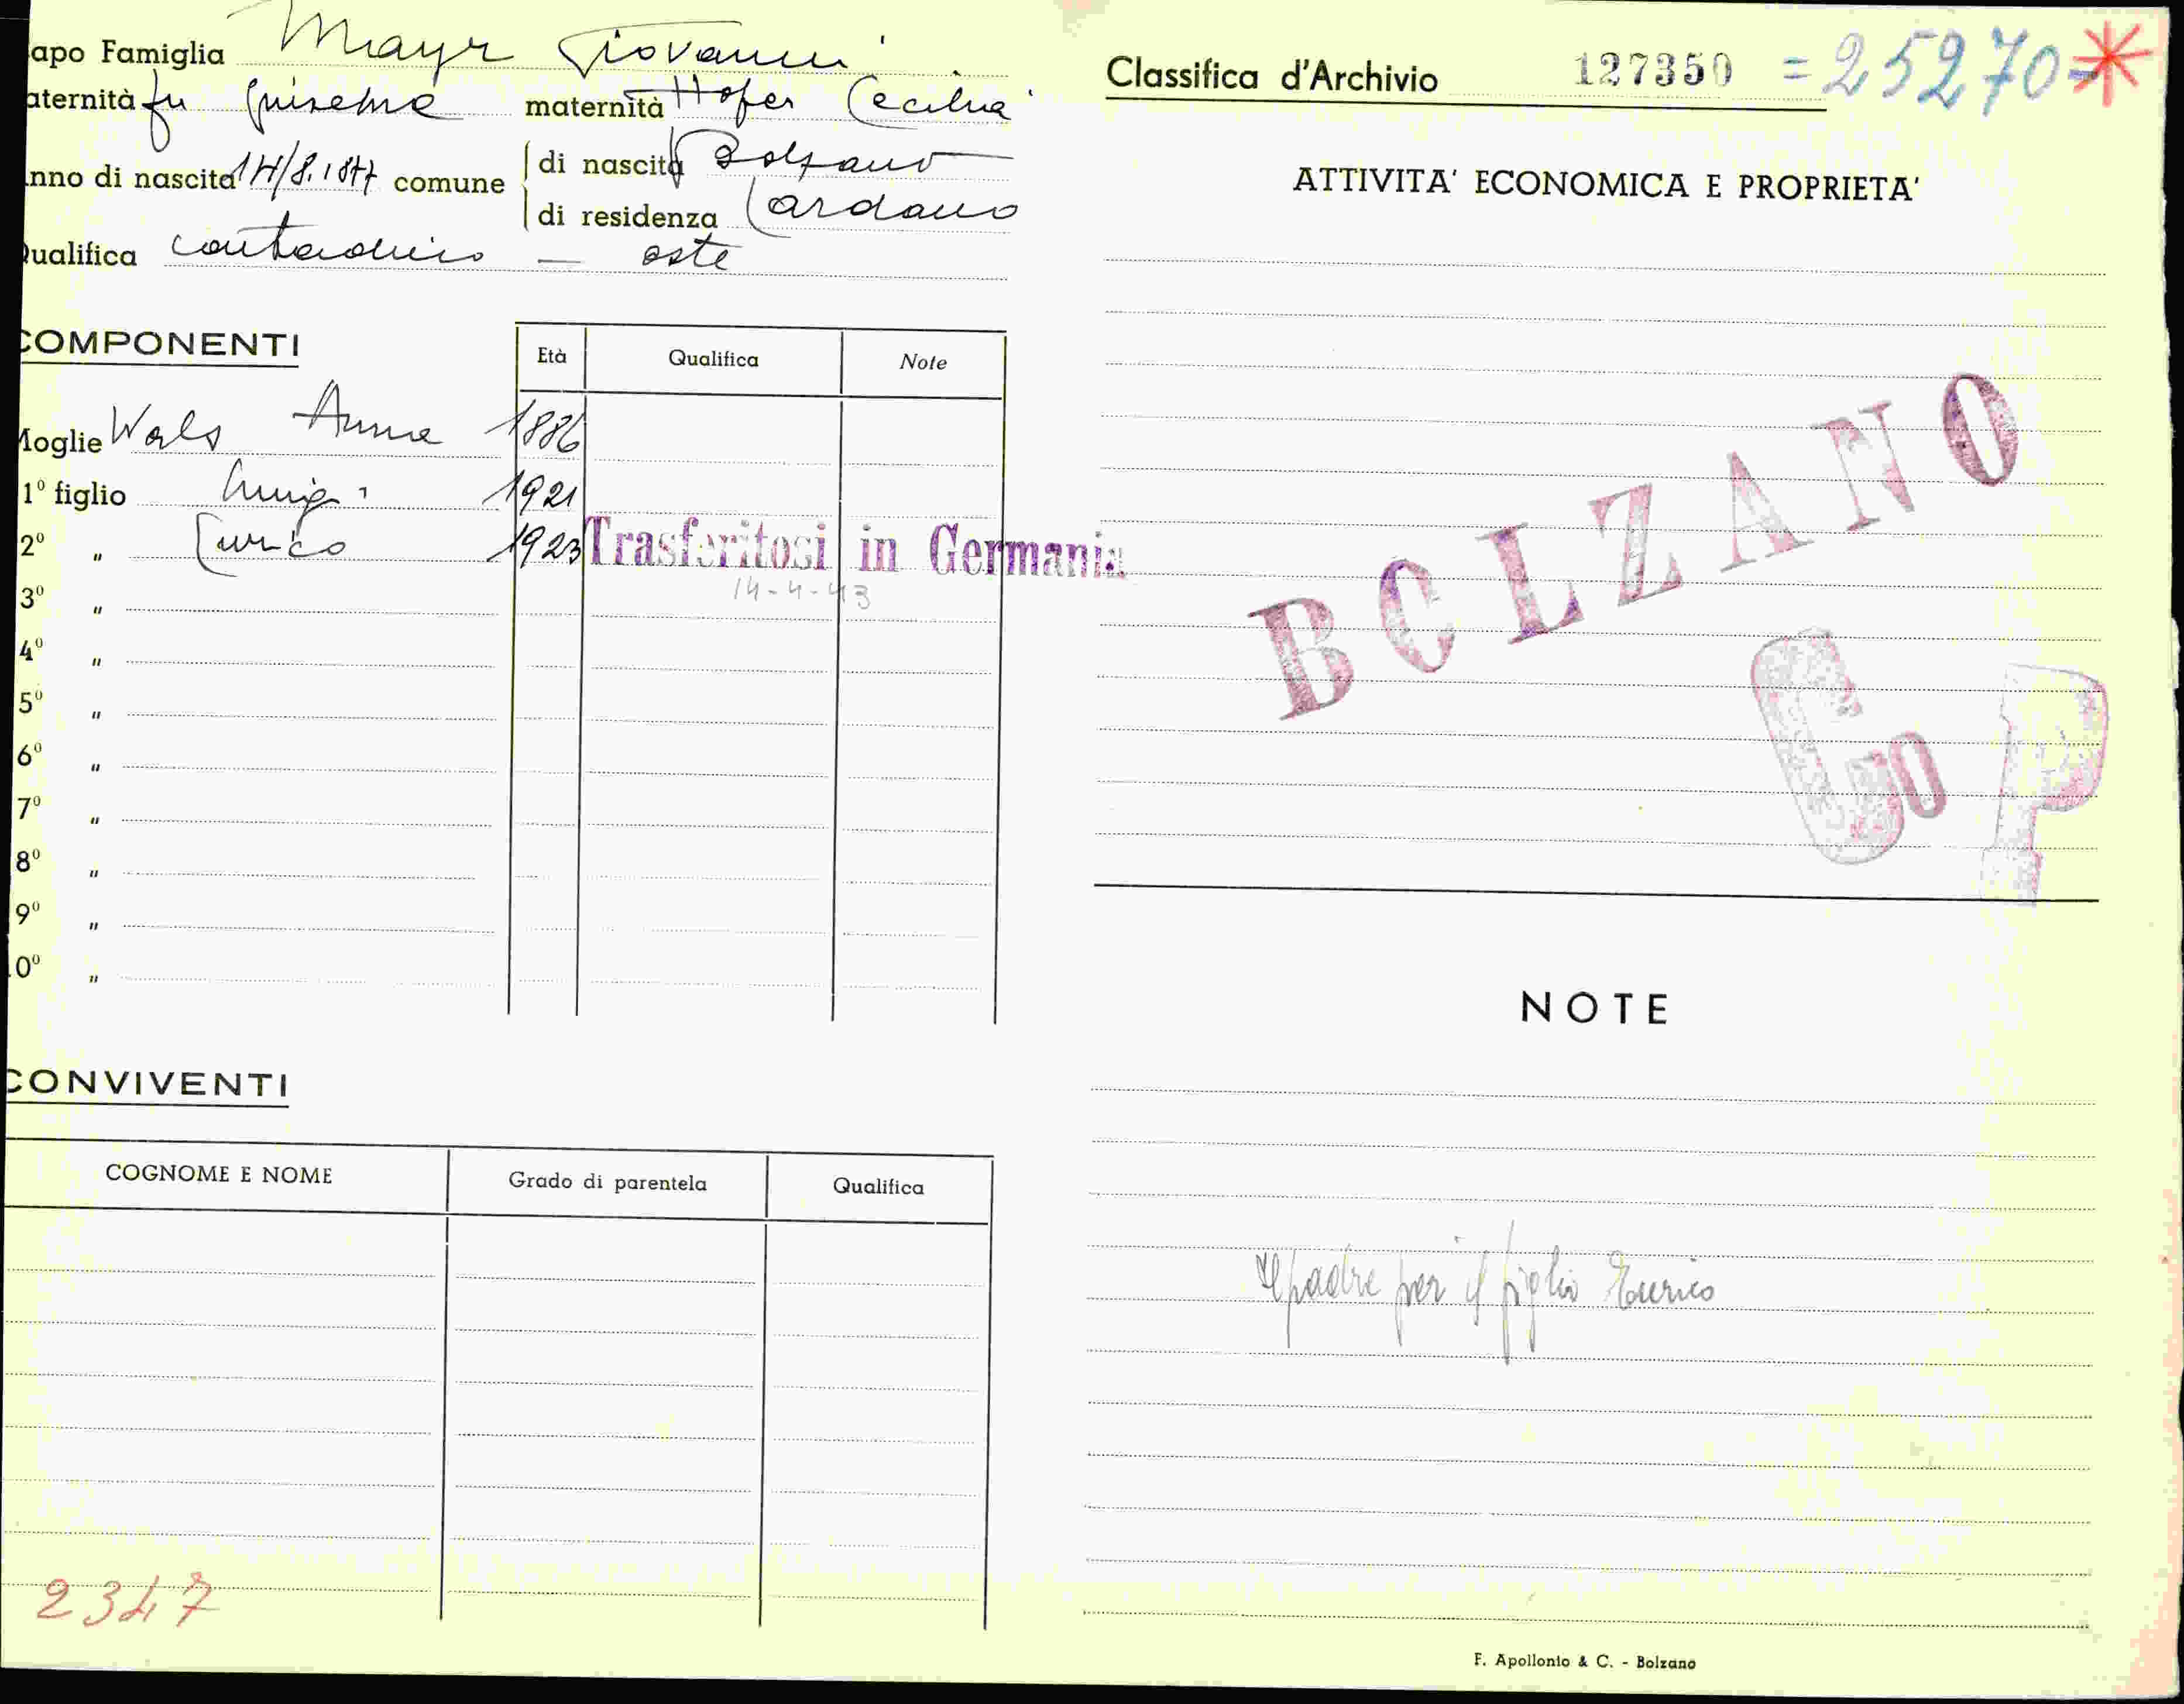 apo Famiglia Mayr Giovanni
aternità fu Giuseppe maternità Hofer Cecilia
nno di nascita 14/8.1877 comune di nascita Bolzano
di residenza Cardano
ualifica contadino — oste
COMPONENTI
Età Qualifica Note
Moglie Wals Anna 1886
1º figlio Luigi 1921
2º " Enrico 1923 Trasferitosi in Germania
14-4-43
3º "
4º "
5º "
6º "
7º "
8º "
9º "
0º "
CONVIVENTI
COGNOME E NOME Grado di parentela Qualifica
2347
Classifica d'Archivio 127350 = 25270 = *
ATTIVITA' ECONOMICA E PROPRIETA'
BOLZANO
C P
NOTE
Il padre per il figlio Enrico
F. Apollonio & C. - Bolzano